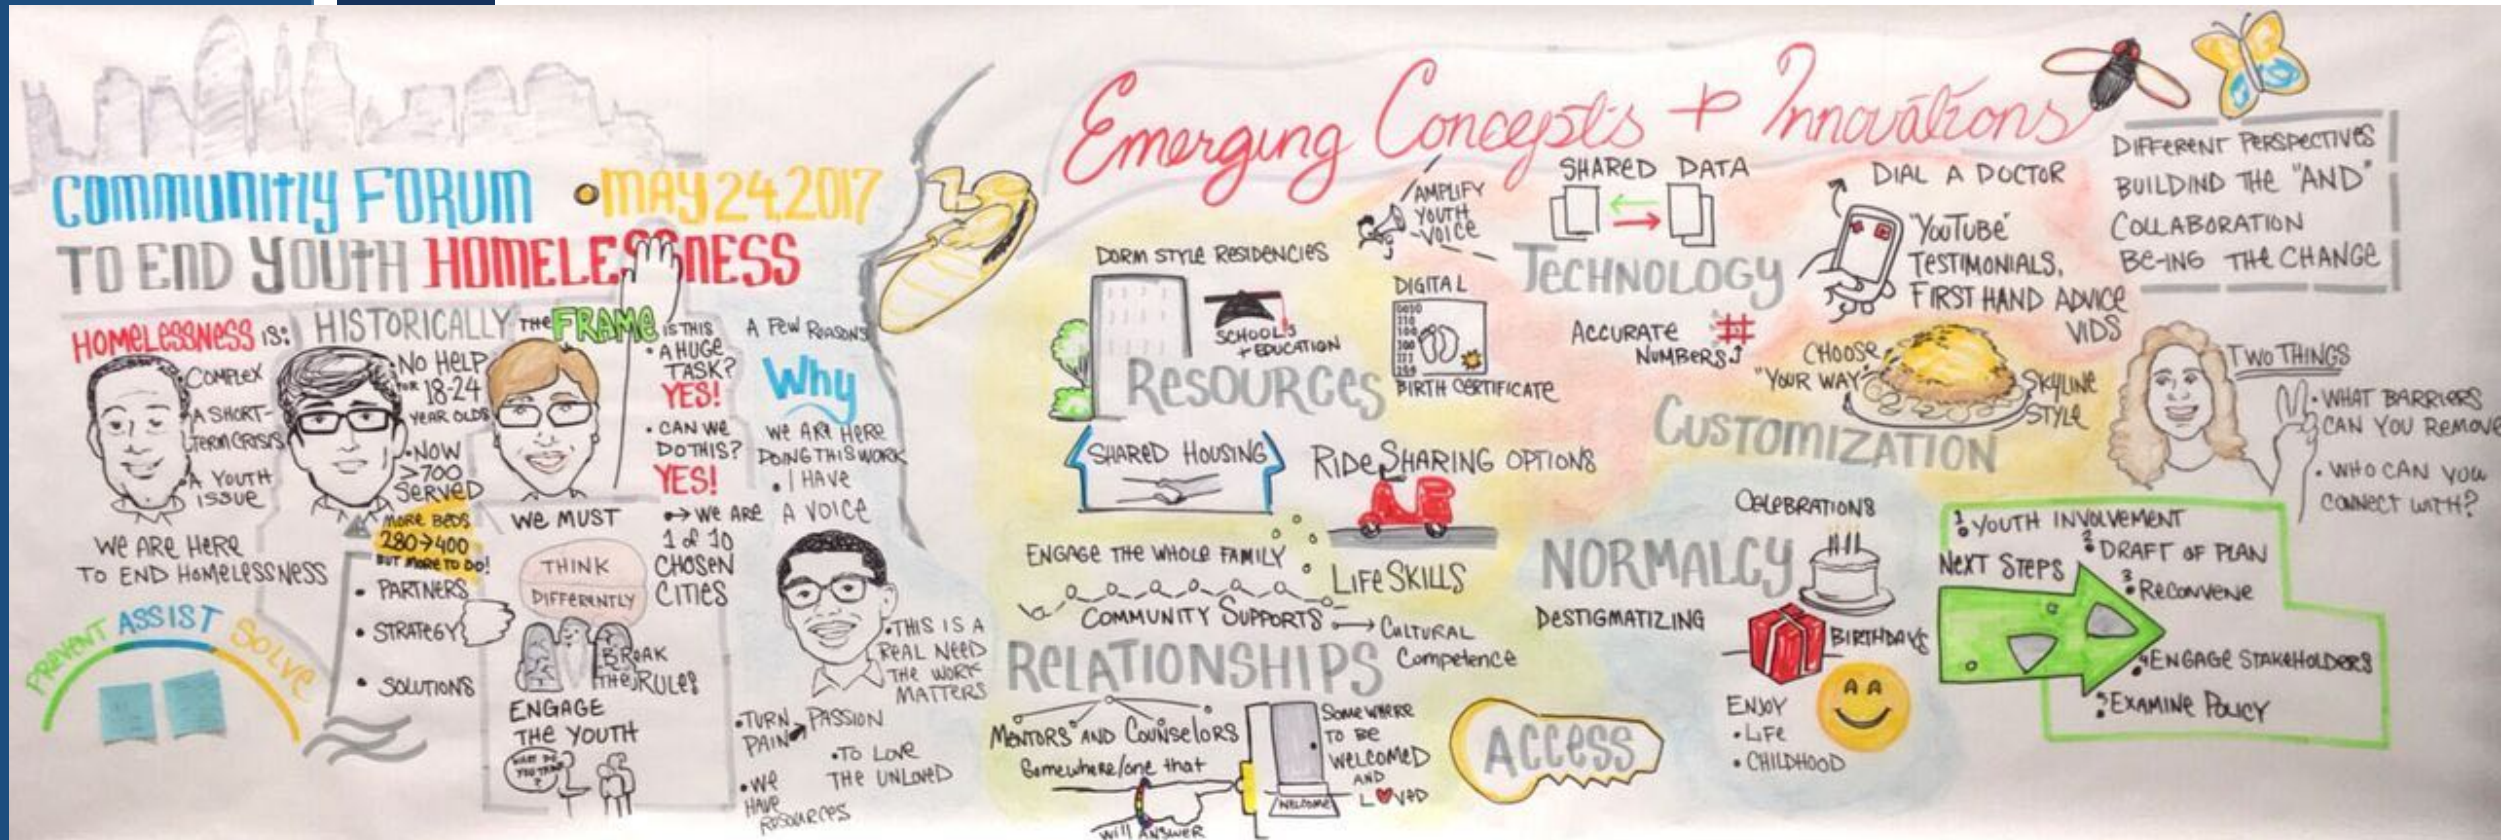 COMMUNITIY FORUM • MAY 24.2017
TO END YOUTH HOMELESSNESS
HOMELESSNESS IS:
COMPLEX
• A SHORT-
TERM CRISIS
• A YOUTH
ISSUE
WE ARE HERE
TO END HOMELESSNESS
PREVENT ASSIST SOLVE
HISTORICALLY
• NO HELP
FOR 18-24
YEAR OLDS
• NOW
>700
SERVED
MORE BEDS
280→400
BUT MORE TO DO!
• PARTNERS
• STRATEGY
• SOLUTIONS
THE FRAME
IS THIS
• A HUGE
TASK?
YES!
• CAN WE
DO THIS?
YES!
•→ WE ARE
1 of 10
CHOSEN
CITIES
WE MUST
THINK
DIFFERENTLY
BREAK
THE RULES
ENGAGE
THE YOUTH
WHAT DO
YOU THINK
?
A FEW REASONS
Why
WE ARE HERE
DOING THIS WORK
• I HAVE
A VOICE
• THIS IS A
REAL NEED
THE WORK
MATTERS
• TURN
PAIN → PASSION
• TO LOVE
THE UNLOVED
• WE
HAVE
RESOURCES
Emerging Concepts + Innovations
AMPLIFY
YOUTH
VOICE
DORM STYLE RESIDENCIES
SCHOOL'S
+ EDUCATION
DIGITAL
BIRTH CERTIFICATE
RESOURCES
SHARED HOUSING
RIDE SHARING OPTIONS
SHARED DATA
TECHNOLOGY
ACCURATE
NUMBERS
#
DIAL A DOCTOR
"YOUTUBE"
TESTIMONIALS,
FIRST HAND ADVICE
VIDS
CHOOSE
"YOUR WAY"
SKYLINE
STYLE
CUSTOMIZATION
ENGAGE THE WHOLE FAMILY
LIFE SKILLS
COMMUNITY SUPPORTS → CULTURAL
Competence
RELATIONSHIPS
MENTORS AND COUNSELORS
Somewhere/one that
WILL ANSWER
WELCOME
SOMEWHERE
TO BE
WELCOMED
AND
LOVED
ACCESS
CELEBRATIONS
NORMALCY
DESTIGMATIZING
BIRTHDAYS
ENJOY
• LIFE
• CHILDHOOD
DIFFERENT PERSPECTIVES
BUILDIND THE "AND"
COLLABORATION
BE-ING THE CHANGE
TWO THINGS
• WHAT BARRIERS
CAN YOU REMOVE
• WHO CAN YOU
CONNECT WITH?
NEXT STEPS
1. YOUTH INVOLVEMENT
2. DRAFT OF PLAN
3. RECONVENE
4. ENGAGE STAKEHOLDERS
5. EXAMINE POLICY